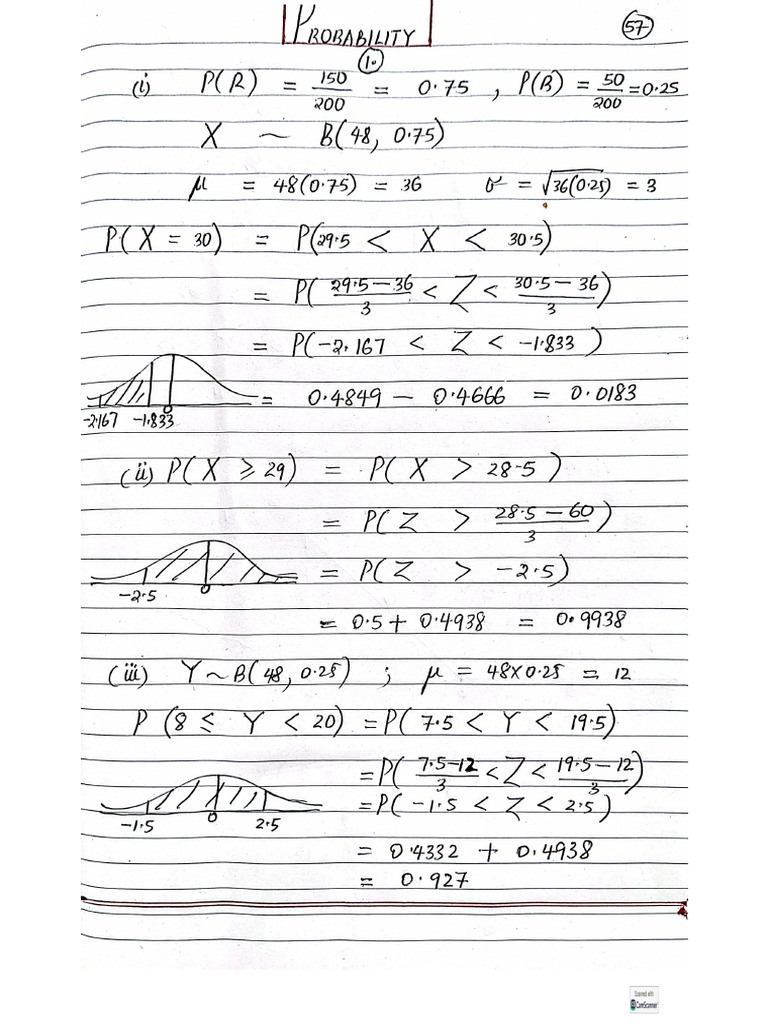 PROBABILITY
57
1.
(i) P(R) = 150/200 = 0.75 , P(B) = 50/200 = 0.25
X ~ B(48, 0.75)
μ = 48(0.75) = 36 σ = √36(0.25) = 3
P(X = 30) = P(29.5 < X < 30.5)
= P( 29.5-36/3 < Z < 30.5-36/3 )
= P(-2.167 < Z < -1.833 )
-2.167 -1.833 0
= 0.4849 - 0.4666 = 0.0183
(ii) P(X ⩾ 29) = P( X > 28.5 )
= P( Z > 28.5-60/3 )
= P( Z > -2.5)
-2.5 0
= 0.5 + 0.4938 = 0.9938
(iii) Y ~ B(48, 0.25) ; μ = 48×0.25 = 12
P (8 ≤ Y < 20) = P( 7.5 < Y < 19.5)
= P( 7.5-12/3 < Z < 19.5-12/3 )
= P( -1.5 < Z < 2.5 )
-1.5 0 2.5
= 0.4332 + 0.4938
= 0.927
Scanned with
CamScanner